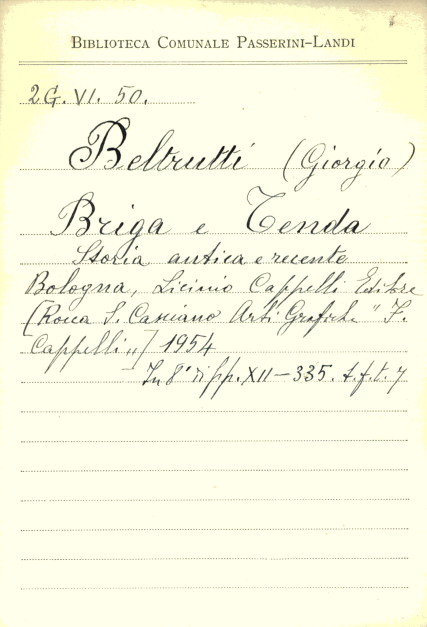 BIBLIOTECA COMUNALE PASSERINI-LANDI
2G. VI. 50.
Beltrutti (Giorgio)
Briga e Tenda
Storia antica e recente
Bologna, Licinio Cappelli Editore
(Rocca S. Casciano Arti Grafiche "F.
Cappelli„] 1954
In 8° di pp. XII-335. t.f.t. 7